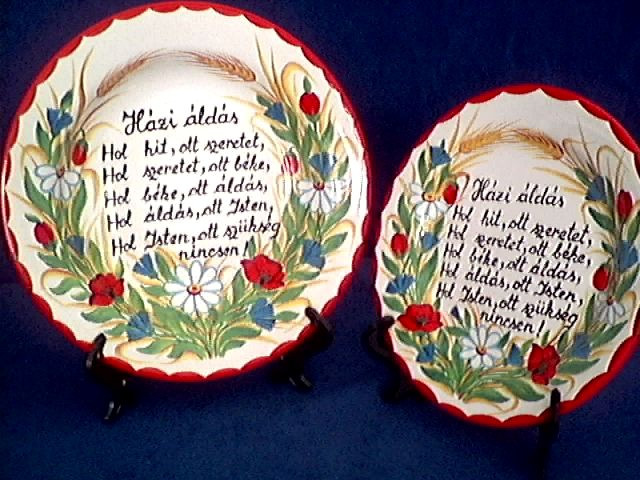 Házi áldás
Hol hit, ott szeretet,
Hol szeretet, ott béke,
Hol béke, ott áldás,
Hol áldás, ott Isten,
Hol Isten, ott szükség
nincsen!
Házi áldás
Hol hit, ott szeretet,
Hol szeretet, ott béke,
Hol béke, ott áldás,
Hol áldás, ott Isten,
Hol Isten, ott szükség
nincsen!